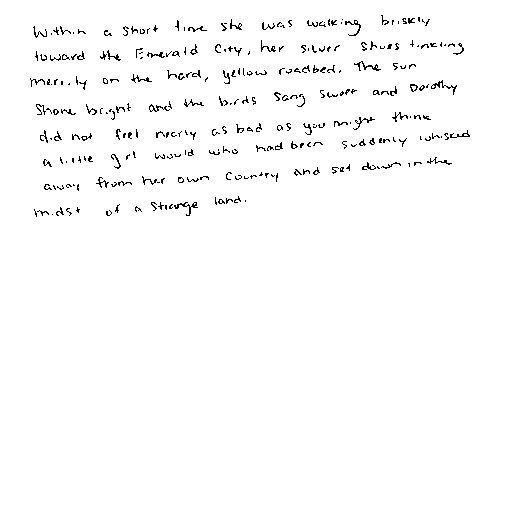 Within a short time she was walking briskly
toward the Emerald City, her silver shoes tinkling
merrily on the hard, yellow roadbed. The sun
shone bright and the birds sang sweet and Dorothy
did not feel nearly as bad as you might think
a little girl would who had been suddenly whisked
away from her own country and set down in the
midst of a strange land.